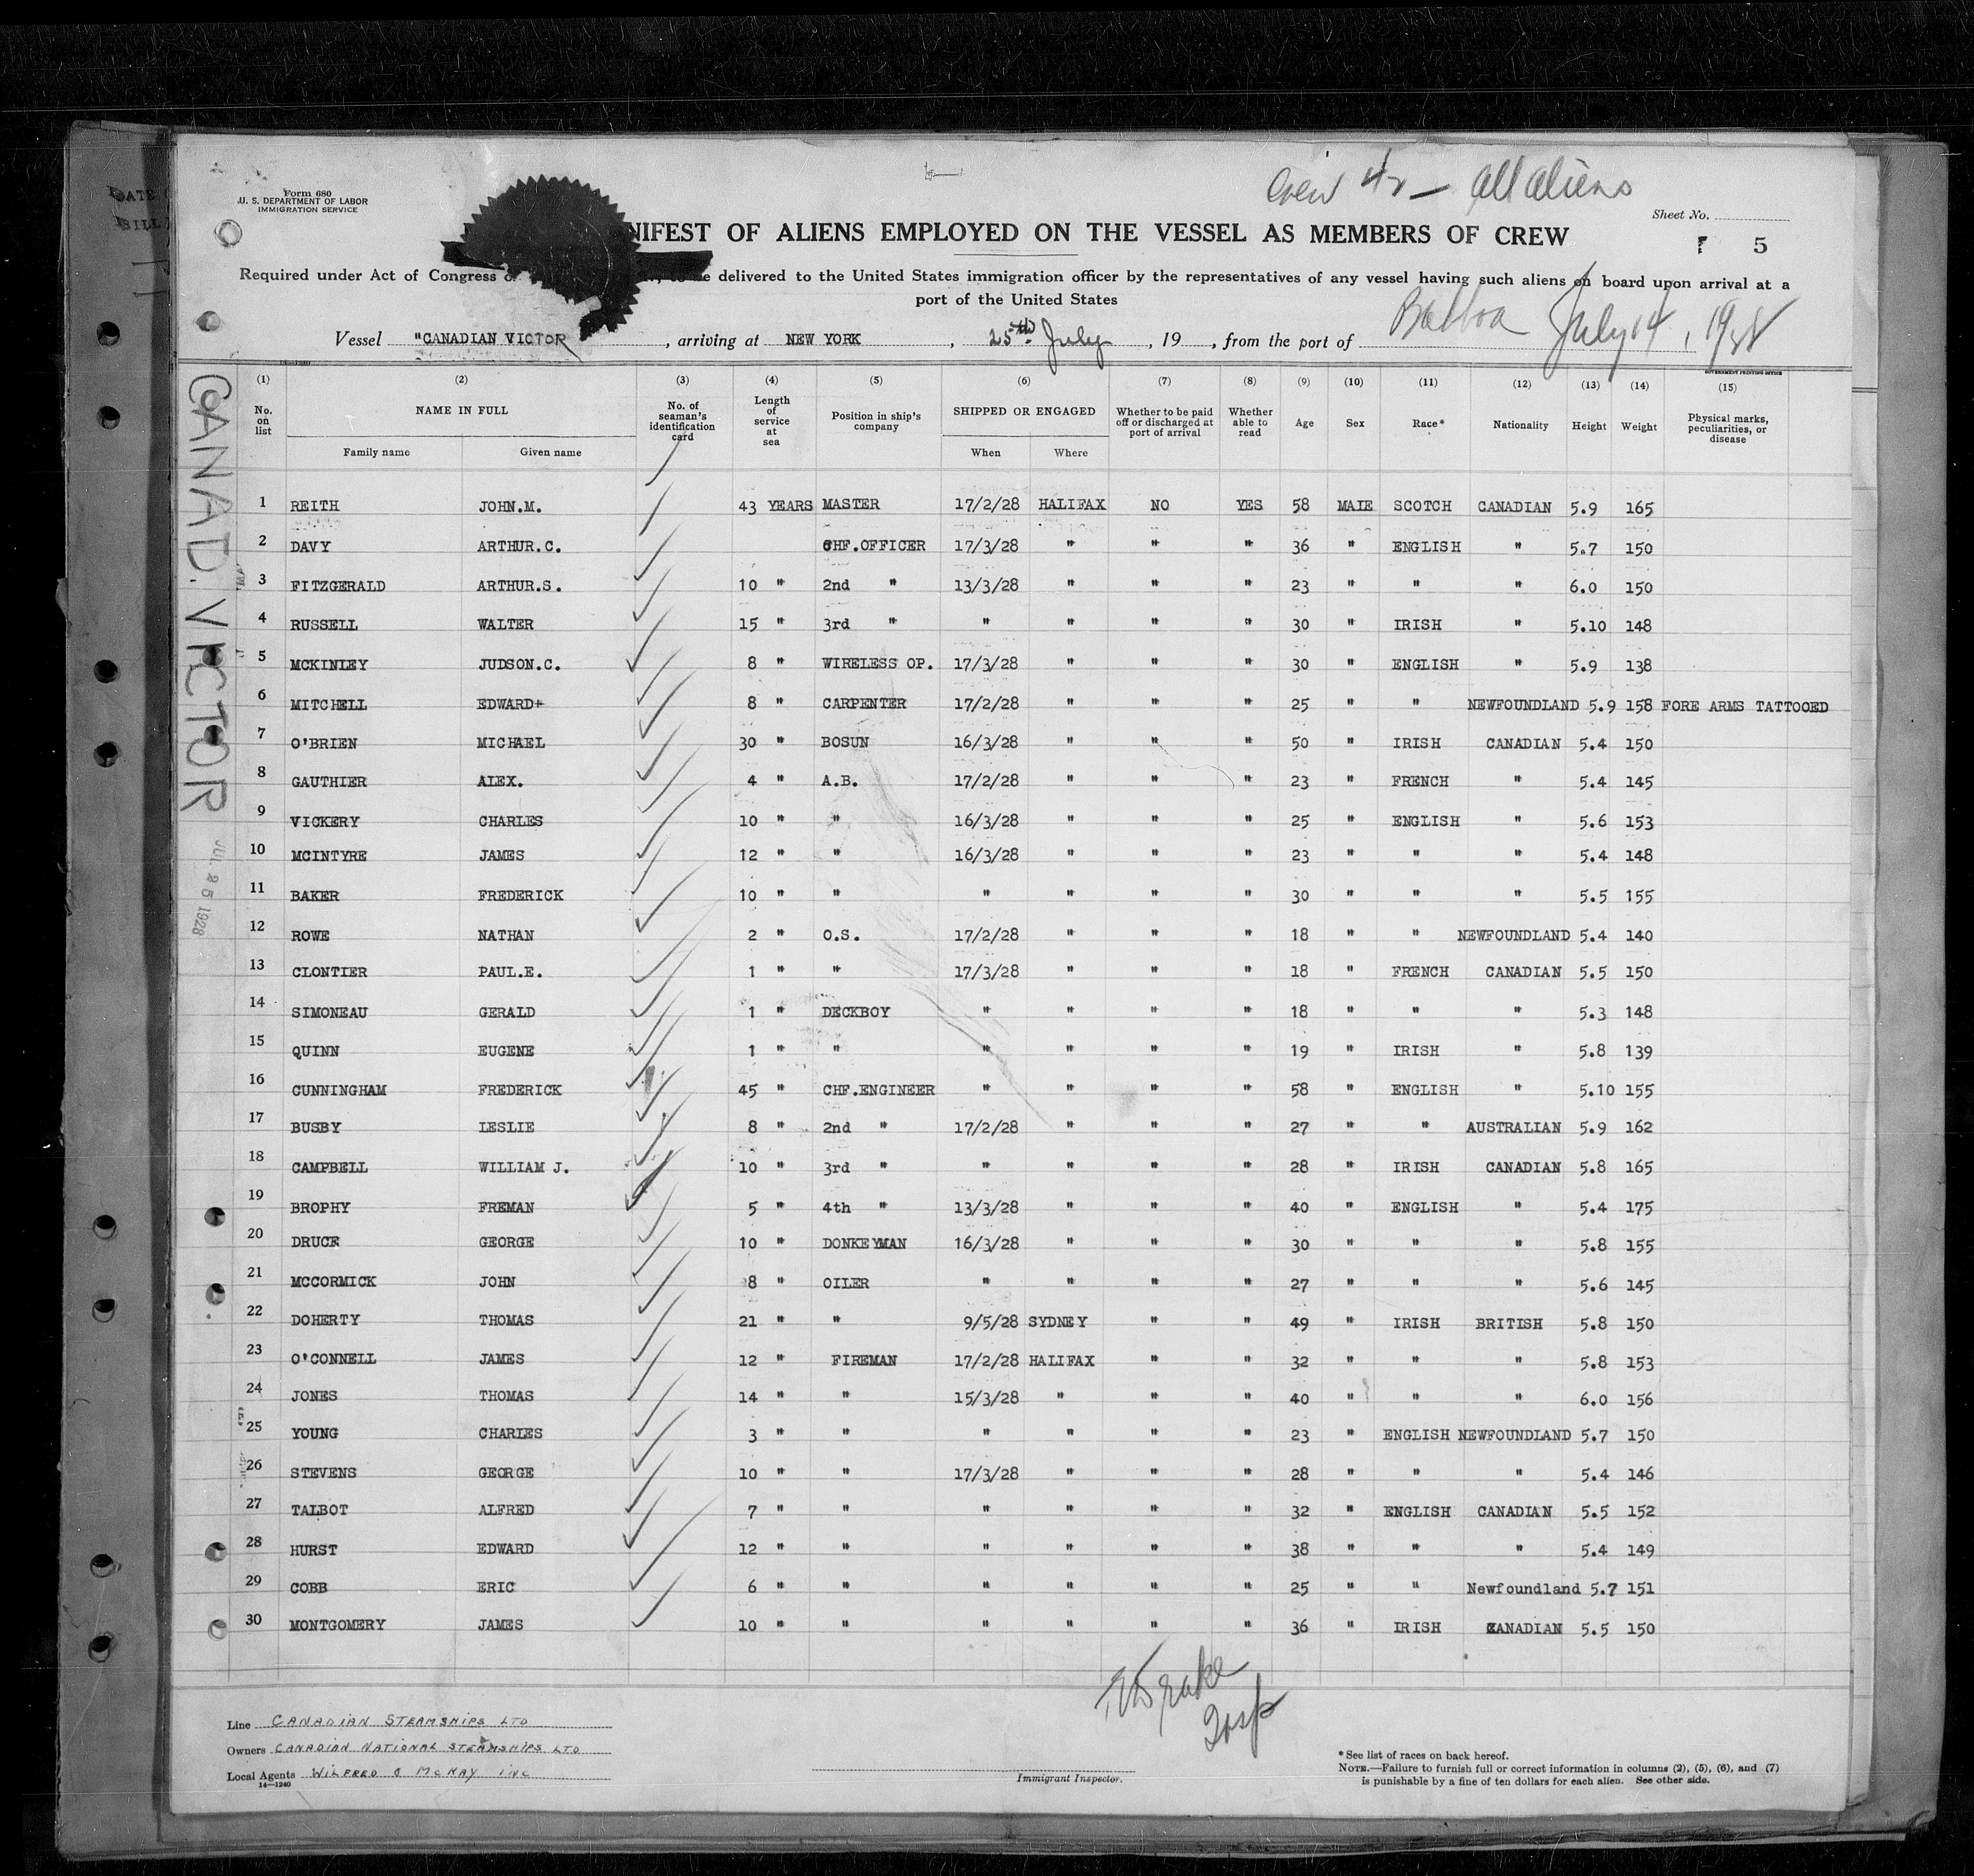 Crew 42 — all aliens
Form 680
U. S. DEPARTMENT OF LABOR
IMMIGRATION SERVICE
Sheet No.
NIFEST OF ALIENS EMPLOYED ON THE VESSEL AS MEMBERS OF CREW
5
Required under Act of Congress to be delivered to the United States immigration officer by the representatives of any vessel having such aliens on board upon arrival at a
port of the United States
Vessel "CANADIAN VICTOR , arriving at NEW YORK , 25th July , 19 , from the port of Balboa July 14, 1928
CANAD. VICTOR
JUL 25 1928
GOVERNMENT PRINTING OFFICE
(1) (2) (3) (4) (5) (6) (7) (8) (9) (10) (11) (12) (13) (14) (15)
No. on list NAME IN FULL No. of seaman's identification card Length of service at sea Position in ship's company SHIPPED OR ENGAGED Whether to be paid off or discharged at port of arrival Whether able to read Age Sex Race* Nationality Height Weight Physical marks, peculiarities, or disease
Family name Given name When Where
1 REITH JOHN.M. 43 YEARS MASTER 17/2/28 HALIFAX NO YES 58 MALE SCOTCH CANADIAN 5.9 165
2 DAVY ARTHUR.C. CHF.OFFICER 17/3/28 " " " 36 " ENGLISH " 5.7 150
3 FITZGERALD ARTHUR.S. 10 " 2nd " 13/3/28 " " " 23 " " " 6.0 150
4 RUSSELL WALTER 15 " 3rd " " " " " 30 " IRISH " 5.10 148
5 MCKINLEY JUDSON.C. 8 " WIRELESS OP. 17/3/28 " " " 30 " ENGLISH " 5.9 138
6 MITCHELL EDWARD+ 8 " CARPENTER 17/2/28 " " " 25 " " NEWFOUNDLAND 5.9 158 FORE ARMS TATTOOED
7 O'BRIEN MICHAEL 30 " BOSUN 16/3/28 " " " 50 " IRISH CANADIAN 5.4 150
8 GAUTHIER ALEX. 4 " A.B. 17/2/28 " " " 23 " FRENCH " 5.4 145
9 VICKERY CHARLES 10 " " 16/3/28 " " " 25 " ENGLISH " 5.6 153
10 MCINTYRE JAMES 12 " " 16/3/28 " " " 23 " " " 5.4 148
11 BAKER FREDERICK 10 " " " " " " 30 " " " 5.5 155
12 ROWE NATHAN 2 " O.S. 17/2/28 " " " 18 " " NEWFOUNDLAND 5.4 140
13 CLONTIER PAUL.E. 1 " " 17/3/28 " " " 18 " FRENCH CANADIAN 5.5 150
14 SIMONEAU GERALD 1 " DECKBOY " " " " 18 " " " 5.3 148
15 QUINN EUGENE 1 " " " " " " 19 " IRISH " 5.8 139
16 CUNNINGHAM FREDERICK 45 " CHF.ENGINEER " " " " 58 " ENGLISH " 5.10 155
17 BUSBY LESLIE 8 " 2nd " 17/2/28 " " " 27 " " AUSTRALIAN 5.9 162
18 CAMPBELL WILLIAM J. 10 " 3rd " " " " " 28 " IRISH CANADIAN 5.8 165
19 BROPHY FREMAN 5 " 4th " 13/3/28 " " " 40 " ENGLISH " 5.4 175
20 DRUCE GEORGE 10 " DONKEYMAN 16/3/28 " " " 30 " " " 5.8 155
21 MCCORMICK JOHN 8 " OILER " " " " 27 " " " 5.6 145
22 DOHERTY THOMAS 21 " " 9/5/28 SYDNEY " " 49 " IRISH BRITISH 5.8 150
23 O'CONNELL JAMES 12 " FIREMAN 17/2/28 HALIFAX " " 32 " " " 5.8 153
24 JONES THOMAS 14 " " 15/3/28 " " " 40 " " " 6.0 156
25 YOUNG CHARLES 3 " " " " " " 23 " ENGLISH NEWFOUNDLAND 5.7 150
26 STEVENS GEORGE 10 " " 17/3/28 " " " 28 " " " 5.4 146
27 TALBOT ALFRED 7 " " " " " " 32 " ENGLISH CANADIAN 5.5 152
28 HURST EDWARD 12 " " " " " " 38 " " " 5.4 149
29 COBB ERIC 6 " " " " " " 25 " " Newfoundland 5.7 151
30 MONTGOMERY JAMES 10 " " " " " " 36 " IRISH CANADIAN 5.5 150
Drake
Insp
Line CANADIAN STEAMSHIPS LTD
Owners CANADIAN NATIONAL STEAMSHIPS LTD
Local Agents WILFRED & McKAY INC
14—1240
Immigrant Inspector.
*See list of races on back hereof.
NOTE.—Failure to furnish full or correct information in columns (2), (5), (6), and (7)
is punishable by a fine of ten dollars for each alien. See other side.